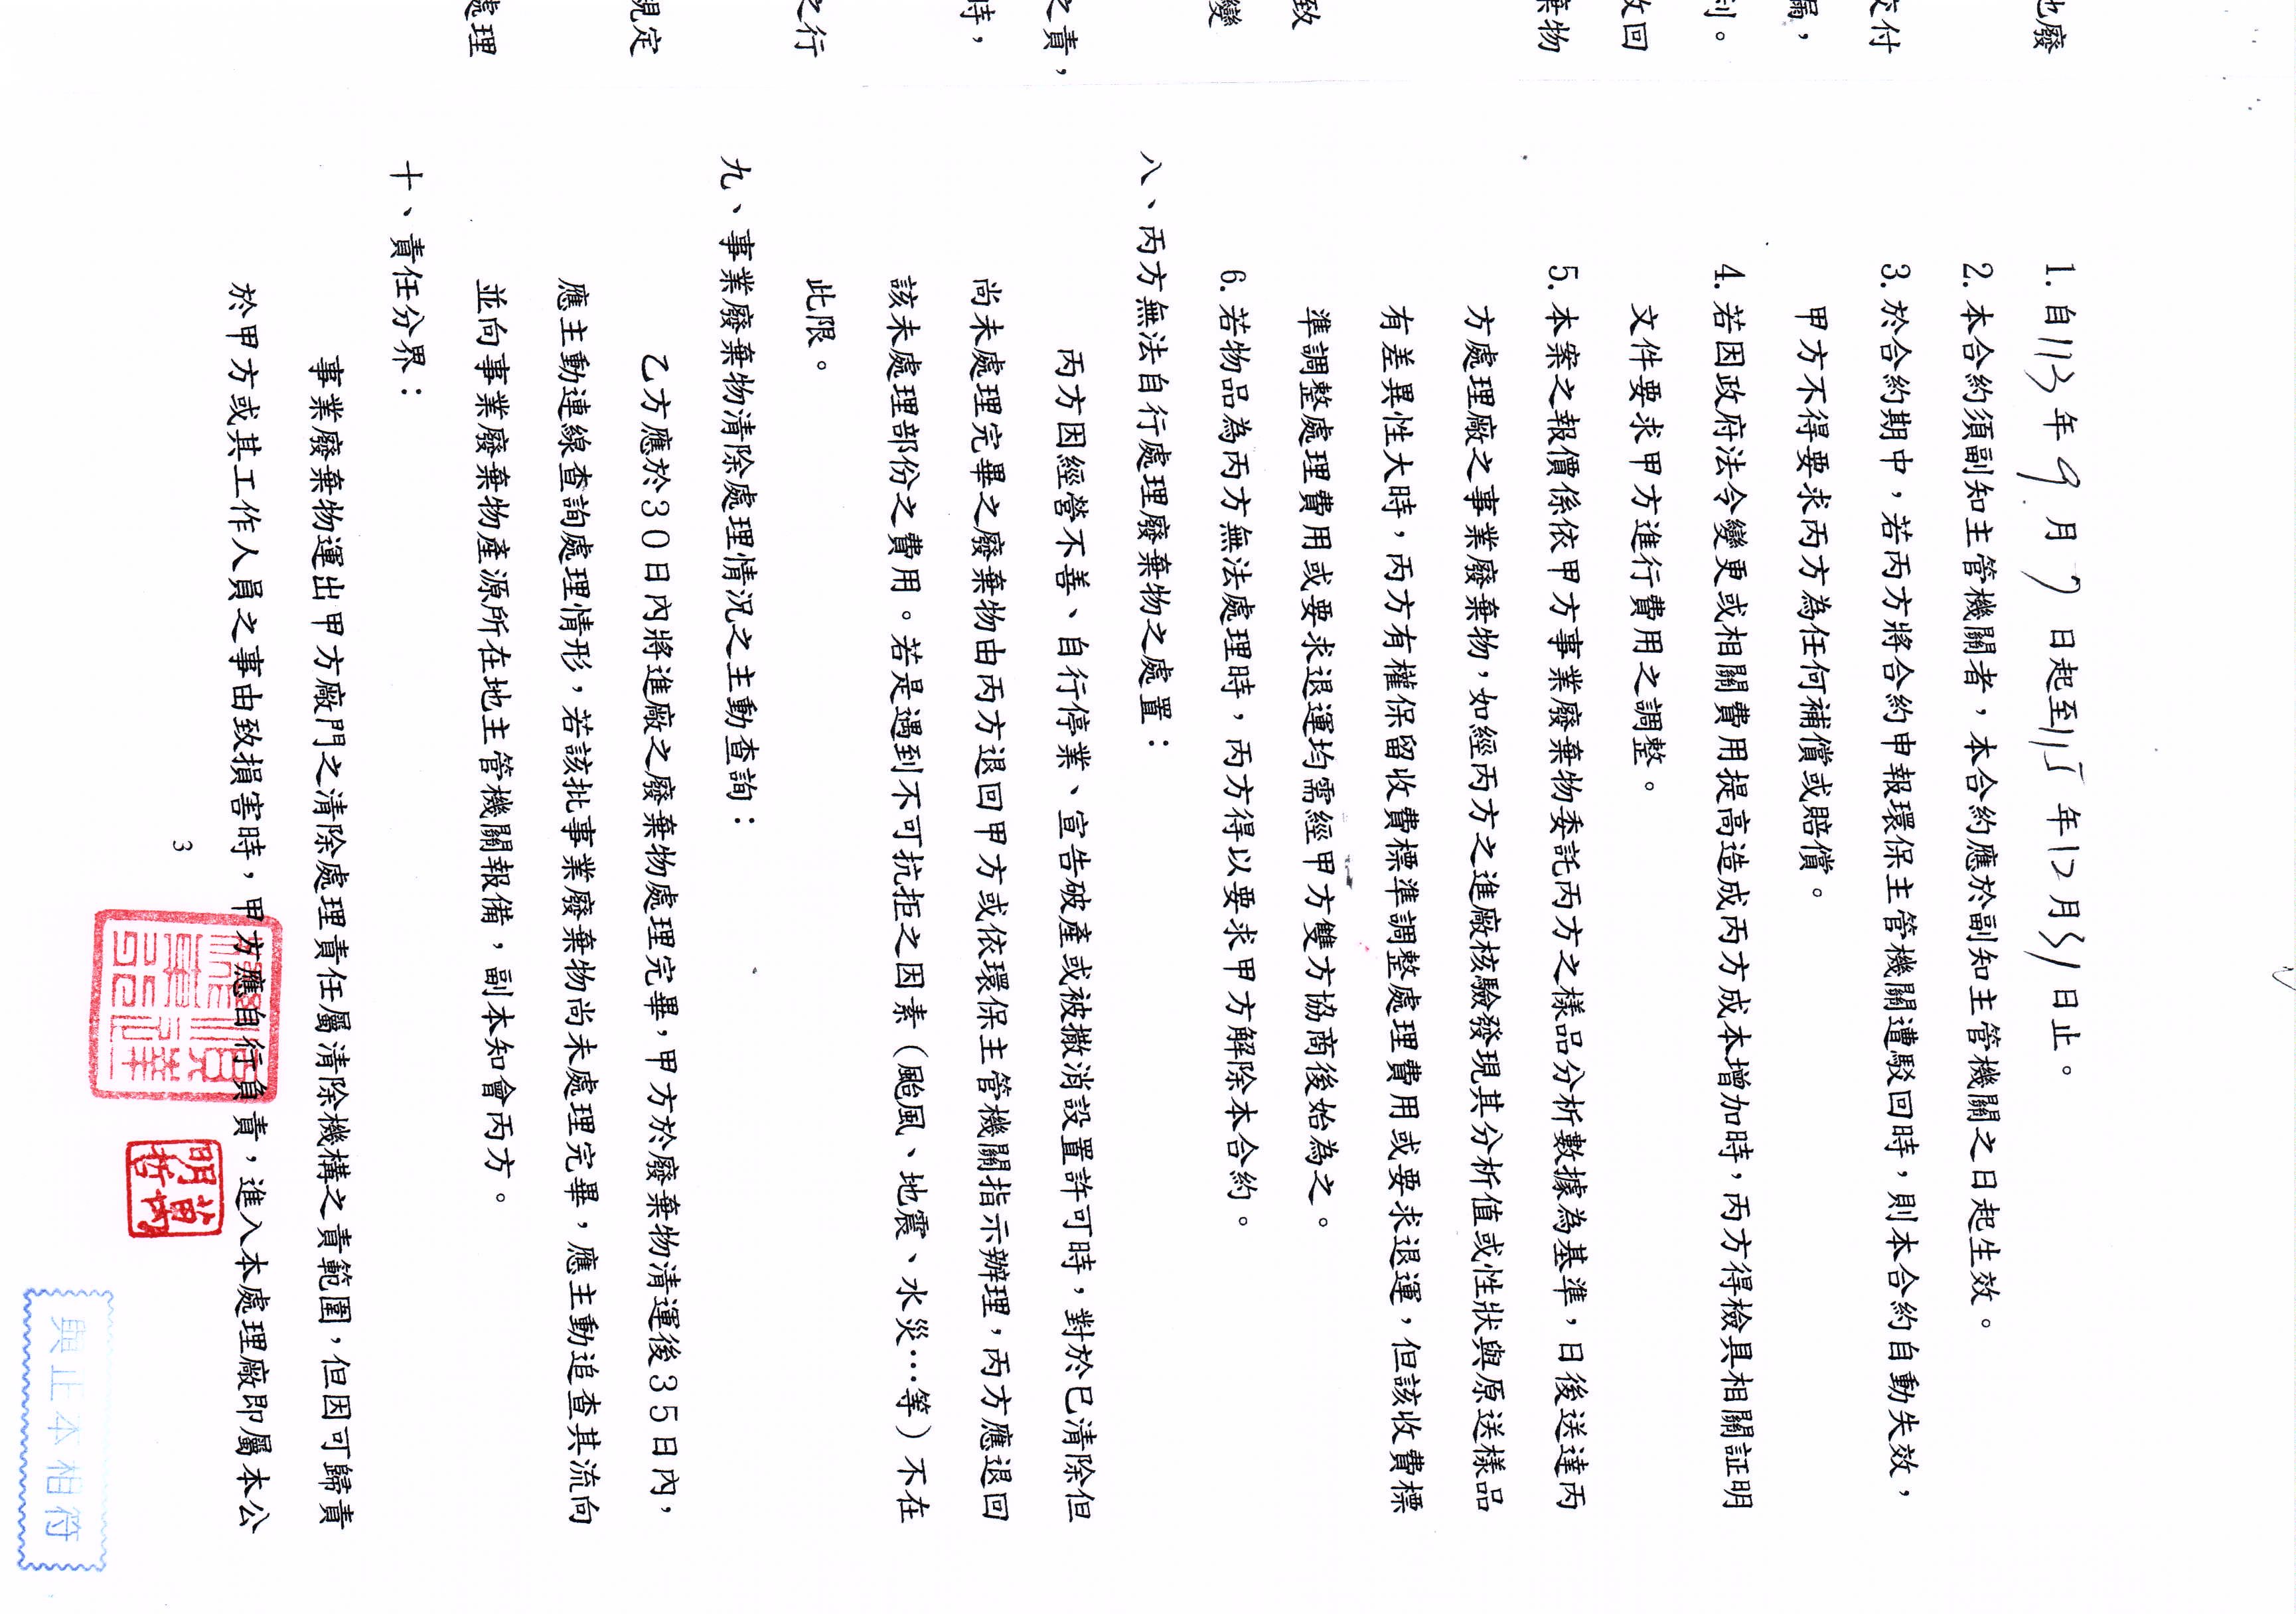 1.自113年9月9日起至115年12月31日止。
2.本合約須副知主管機關者，本合約應於副知主管機關之日起生效。
3.於合約期中，若丙方將合約申報環保主管機關遭駁回時，則本合約自動失效，
甲方不得要求丙方為任何補償或賠償。
4.若因政府法令變更或相關費用提高造成丙方成本增加時，丙方得檢具相關証明
文件要求甲方進行費用之調整。
5.本案之報價係依甲方事業廢棄物委託丙方之樣品分析數據為基準，日後送達丙
方處理廠之事業廢棄物，如經丙方之進廠核驗發現其分析值或性狀與原送樣品
有差異性大時，丙方有權保留收費標準調整處理費用或要求退運，但該收費標
準調整處理費用或要求退運均需經甲方雙方協商後始為之。
6.若物品為丙方無法處理時，丙方得以要求甲方解除本合約。
八、丙方無法自行處理廢棄物之處置：
丙方因經營不善、自行停業、宣告破產或被撤消設置許可時，對於已清除但
尚未處理完畢之廢棄物由丙方退回甲方或依環保主管機關指示辦理，丙方應退回
該未處理部份之費用。若是遇到不可抗拒之因素（颱風、地震、水災…等）不在
此限。
九、事業廢棄物清除處理情況之主動查詢：
乙方應於30日內將進廠之廢棄物處理完畢，甲方於廢棄物清運後35日內，
應主動連線查詢處理情形，若該批事業廢棄物尚未處理完畢，應主動追查其流向
並向事業廢棄物產源所在地主管機關報備，副本知會丙方。
十、責任分界：
事業廢棄物運出甲方廠門之清除處理責任屬清除機構之責範圍，但因可歸責
於甲方或其工作人員之事由致損害時，甲方應自行負責，進入本處理廠即屬本公
3
與正本相符
地廢
交付
漏，
利。
收回
棄物
致
變
之責，
時，
之行
規定
處理